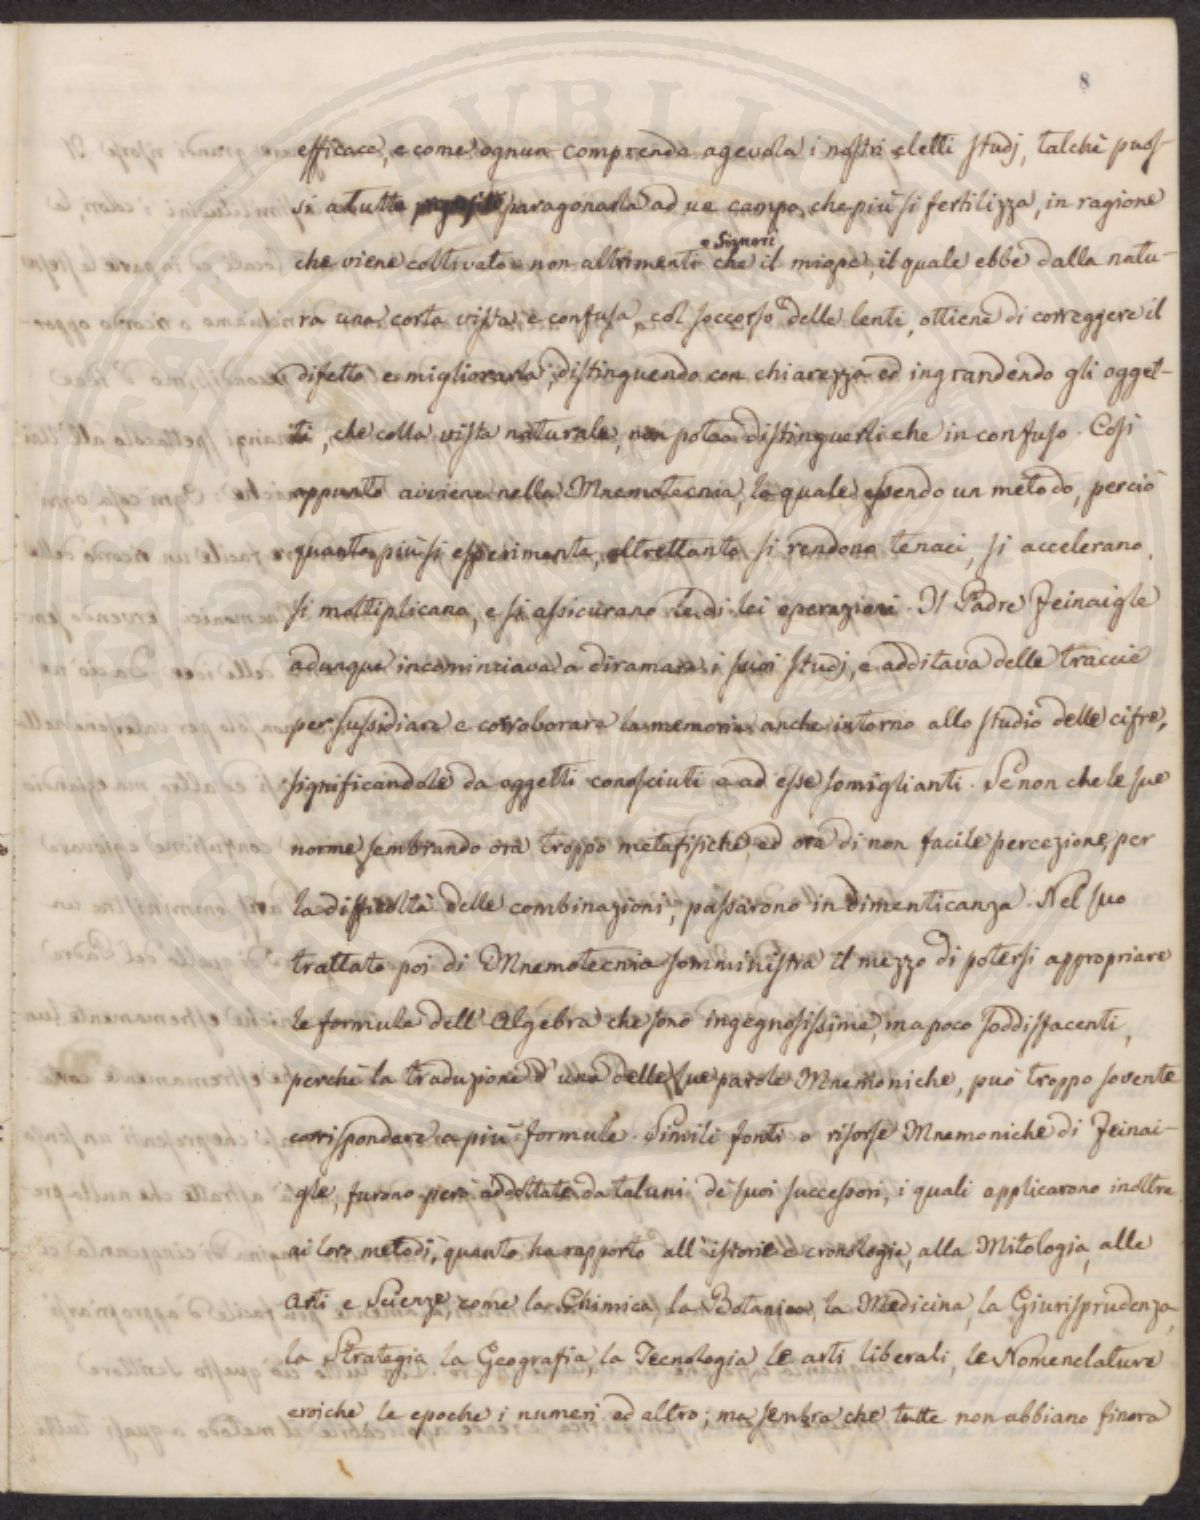 8
efficace, e come ognun comprende agevola i nostri eletti studj, talchè puos-
si a tutto paragonarla ad un campo, che più si fertilizza, in ragione
o Signori
che viene coltivato e non altrimenti che il miope, il quale ebbe dalla natu-
ra una corta vista e confusa, col soccorso delle lenti, ottiene di correggere il
difetto e migliorarla, distinguendo con chiarezza ed ingrandendo gli ogget-
ti, che colla vista naturale, non potea distinguerli che in confuso. Così
appunto avviene nella Mnemotecnia, la quale essendo un metodo, perciò
quanto più si esperimenta, altrettanto si rendono tenaci, si accelerano,
si moltiplicano, e si assicurano le di lei operazioni. Il Padre Feinaigle
adunque incominciava a diramare i suoi studj, e additava delle traccie
per sussidiare e corroborare la memoria anche intorno allo studio delle cifre,
significandole da oggetti conosciuti e ad esse somiglianti. Se non che le sue
norme sembrando ora troppo metafisiche, ed ora di non facile percezione, per
la difficoltà delle combinazioni, passarono in dimenticanza. Nel suo
trattato poi di Mnemotecnia somministra il mezzo di potersi appropriare
le formule dell'Algebra che sono ingegnosissime, ma poco soddisfacenti,
perchè la traduzione d'una delle sue parole Mnemoniche, può troppo sovente
corrispondere a più formule. Simili fonti o risorse Mnemoniche di Feinai-
gle, furono però addottate da taluni de' suoi successori, i quali applicarono inoltre
ai loro metodi, quanto ha rapporto all'istorie e cronologie, alla Mitologia, alle
Arti e Scienze, come la Chimica, la Botanica, la Medicina, la Giurisprudenza,
la Strategia, la Geografia, la Tecnologia, le arti liberali, le Nomenclature
eroiche, le epoche, i numeri ed altro; ma sembra che tutte non abbiano finora